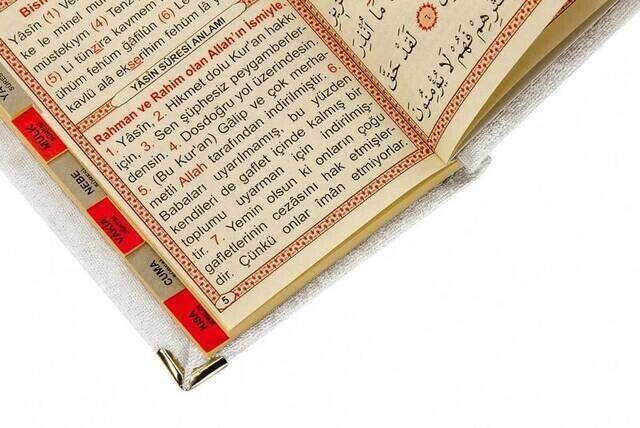 Yâsin (1)
ke le minel
müstekıym (4) Tenz
(5) Li tünzira kavmem
ühüm fehüm ğâfilûn (6) Le
kavlü alâ ekserihim fehüm lâ y
YÂSİN SÛRESİ ANLAMI
Rahman ve Rahim olan Allah'ın İsmiyle
1. Yâsin, 2. Hikmet dolu Kur'an hakkı
için. 3. Sen şüphesiz peygamberler-
densin. 4. Dosdoğru yol üzerindesin.
5. (Bu Kur'an) Gâlip ve çok merha-
metli Allah tarafından indirilmiştir. 6.
Babaları uyarılmamış, bu yüzden
kendileri de gaflet içinde kalmış bir
toplumu uyarman için indirilmiş-
tir. 7. Yemin olsun ki onların çoğu
gafletlerinin cezâsını hak etmişler-
dir. Çünkü onlar îmân etmiyorlar.
5
لَقَدْ حَقَّ
فَهُمْ لَا يُؤْمِنُونَ
MÜLK
NEBE
VAKIA
CUMA
KISA